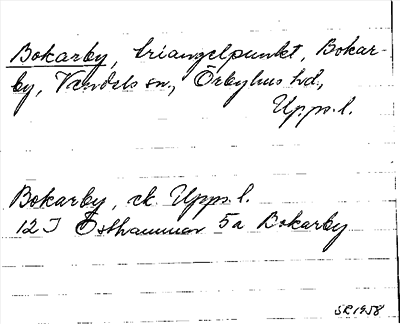 Bokarby, triangelpunkt, Bokar-
by, Vendels sn., Örbyhus hd.,
Upps. l.
Bokarby, ek. Upps. l.
12 I Östhammar 5a Bokarby
SR 1958